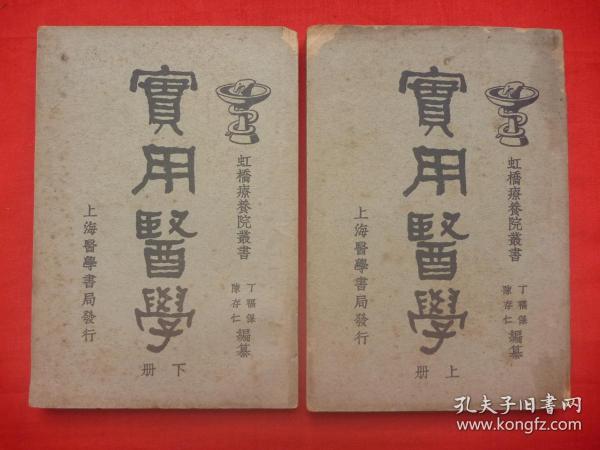 虹橋療養院叢書
丁福保
陳存仁
編纂
實用醫學
下册
上海醫學書局發行
虹橋療養院叢書
丁福保
陳存仁
編纂
實用醫學
上册
上海醫學書局發行
孔夫子旧书网
www.kongfz.com